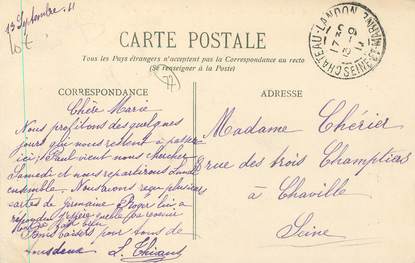 13 Septembre 11
CARTE POSTALE
Tous les Pays étrangers n'acceptent pas la Correspondance au recto
(Se renseigner à la Poste)
CHATEAU-LANDON
17 30
13 - 9
11
SEINE & MARNE
CORRESPONDANCE
ADRESSE
Chère Marie
Nous profitons des quelques
jours qui nous restent à passer
ici; Paul vient nous chercher
Samedi et nous repartirons tous
ensemble. Nous avons reçu plusieurs
cartes de Germaine Roger lui a
répondu
Bons baisers pour tous de
nous deux
Madame Chérier
rue des trois Champtiers
à Chaville
Seine